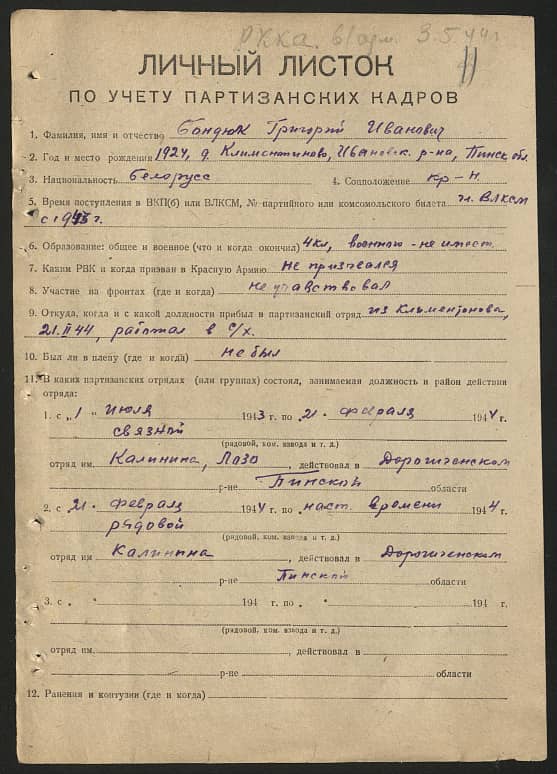 РККА. 3.5.44г.
11
ЛИЧНЫЙ ЛИСТОК
ПО УЧЕТУ ПАРТИЗАНСКИХ КАДРОВ
1. Фамилия, имя и отчество Бондюк Григорий Иванович
2. Год и место рождения 1924, д. Климонтиново, Ивановск. р-на, Пинск. обл.
3. Национальность Белорусс 4. Соцположение кр-н.
5. Время поступления в ВКП(б) или ВЛКСМ, № партийного или комсомольского билета чл. ВЛКСМ
с 1943 г.
6. Образование: общее и военное (что и когда окончил) 4 кл, военного - не имеет.
7. Каким РВК и когда призван в Красную Армию не призывался
8. Участие на фронтах (где и когда) не участвовал
9. Откуда, когда и с какой должности прибыл в партизанский отряд из Климентонова,
21.II 44, работал в с/х.
10. Был ли в плену (где и когда) не был
11. В каких партизанских отрядах (или группах) состоял, занимаемая должность и район действия
отряда:
1. с „1 “ июля 1943 г. по 21. февраля 1944 г.
связной
(рядовой, ком. взвода и т. д.)
отряд им. Калинина, Лазо, действовал в Дорогиченском
р-не Пинской области
2. с 21. февраля 1944 г. по наст. времени 1944 г.
рядовой
(рядовой, ком. взвода и т. д.)
отряд им Калинина, действовал в Дорогиченским
р-не Пинской области
3. с „ “ 194 г. по „ “ 194 г.
(рядовой, ком. взвода и т. д.)
отряд им. , действовал в
р-не области
12. Ранения и контузии (где и когда)